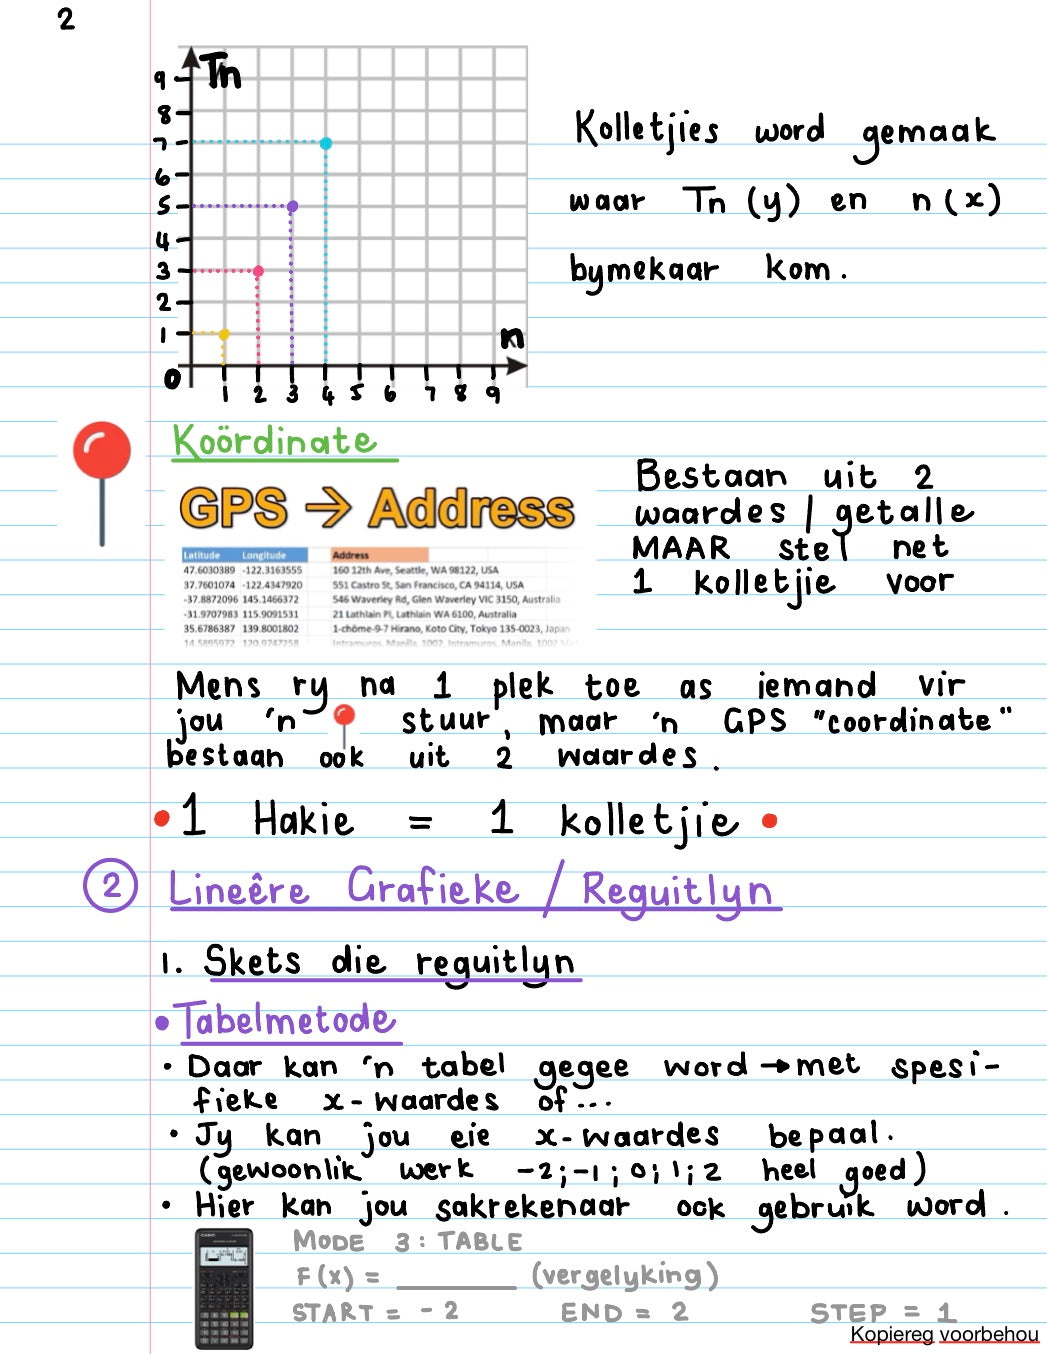 2
Tn
9
8
7
6
5
4
3
2
1
0
n
1 2 3 4 5 6 7 8 9
Kolletjies word gemaak
waar Tn (y) en n (x)
bymekaar kom.
Koördinate
GPS → Address
Latitude Longitude Address
47.6030389 -122.3163555 160 12th Ave, Seattle, WA 98122, USA
37.7601074 -122.4347920 551 Castro St, San Francisco, CA 94114, USA
-37.8872096 145.1466372 546 Waverley Rd, Glen Waverley VIC 3150, Australia
-31.9707983 115.9091531 21 Lathlain Pl, Lathlain WA 6100, Australia
35.6786387 139.8001802 1-chōme-9-7 Hirano, Koto City, Tokyo 135-0023, Japan
14.5895972 120.9747258 Intramuros, Manila, 1002, Intramuros, Manila, 1002
Bestaan uit 2
waardes / getalle
MAAR stel net
1 kolletjie voor
Mens ry na 1 plek toe as iemand vir
jou 'n stuur, maar 'n GPS "coordinate"
bestaan ook uit 2 waardes.
• 1 Hakie = 1 kolletjie •
2 Lineêre Grafieke / Reguitlyn
1. Skets die reguitlyn
• Tabelmetode
• Daar kan 'n tabel gegee word → met spesi-
fieke x-waardes of...
• Jy kan jou eie x-waardes bepaal.
(gewoonlik werk -2; -1; 0; 1; 2 heel goed)
• Hier kan jou sakrekenaar ook gebruik word.
CASIO
MODE 3: TABLE
F(x) = ________ (vergelyking)
START = -2 END = 2 STEP = 1
Kopiereg voorbehou